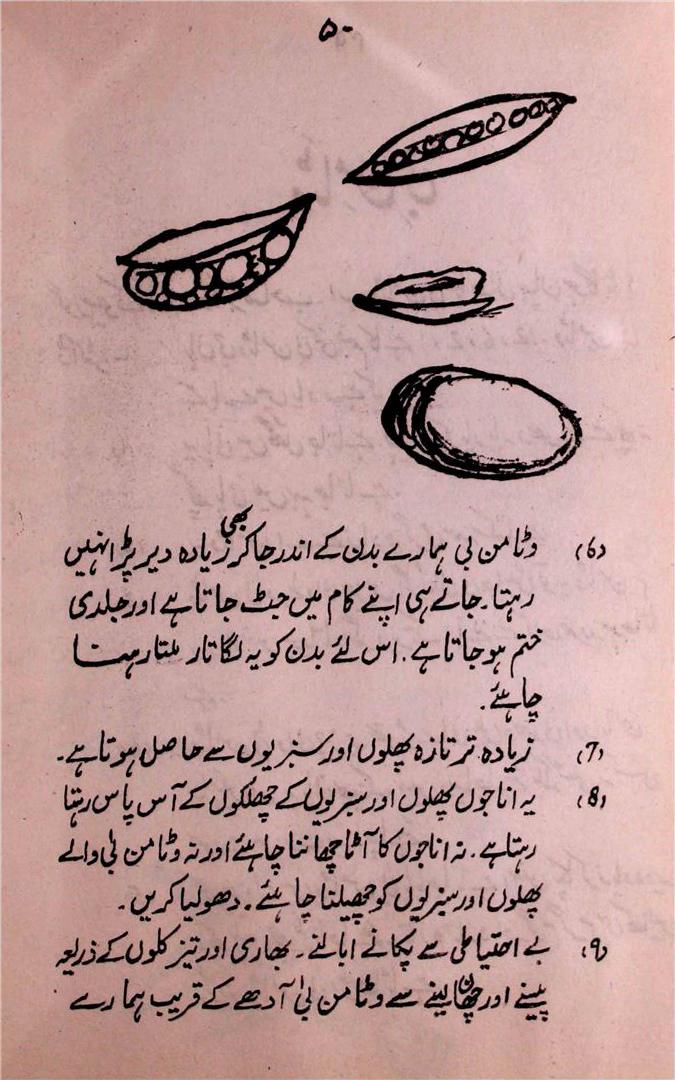 ۵۰
(6) وٹامن بی ہمارے بدن کے اندر جاکر بھی زیادہ دیر پڑا نہیں
رہتا۔ جاتے ہی اپنے کام میں جٹ جاتا ہے اور جلدی
ختم ہو جاتا ہے۔ اس لئے بدن کو یہ لگاتار ملتا رہنا
چاہئے۔
(7) زیادہ تر تازہ پھلوں اور سبزیوں سے حاصل ہوتا ہے۔
(8) یہ اناجوں پھلوں اور سبزیوں کے چھلکوں کے آس پاس رہتا
رہتا ہے۔ نہ اناجوں کا آٹا چھاننا چاہئے اور نہ وٹامن بی والے
پھلوں اور سبزیوں کو چھیلنا چاہئے۔ دھو لیا کریں۔
(9) بے احتیاطی سے پکانے ابالنے۔ بھاری اور تیز کلوں کے ذریعہ
پیسنے اور چھان لینے سے وٹامن بی آدھے کے قریب ہمارے